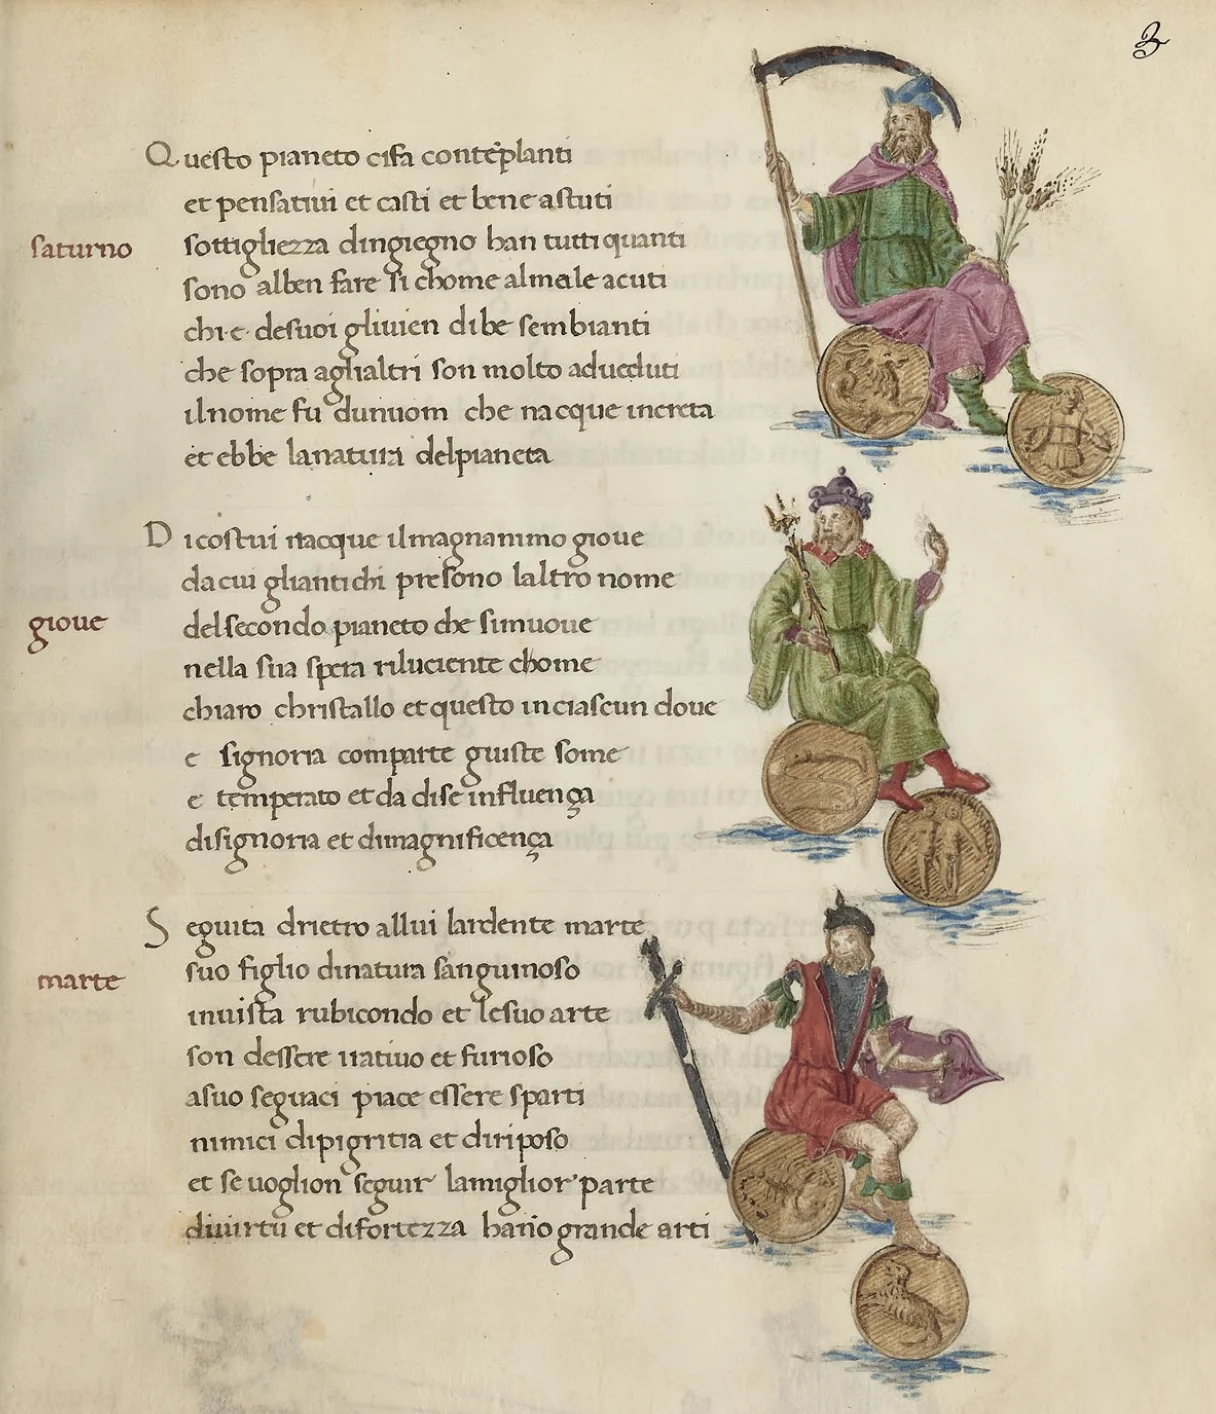 3
Questo pianeto ci fa contẽplanti
et pensatiui et casti et bene astuti
saturno
sottigliezza dingiegno han tutti quanti
sono alben fare si chome almale acuti
chi·e· desuoi gliuien dibe sembianti
che sopra aglialtri son molto adueduti
ilnome fu dunuom che nacque increta
et ebbe lanatura delpianeta
Dicostui nacque ilmagnanimo gioue
dacui gliantichi presono laltro nome
gioue
delsecondo pianeto che simuoue
nella sua spera riluciente chome
chiaro christallo et questo inciascun doue
e signoria comparte giuste some
e temperato et da dise influença
disignoria et dimagnificença
Seguita drietro allui lardente marte
marte
suo figlio dinatura sanguinoso
inuista rubicondo et lesuo arte
son dessere iratiuo et furioso
asuo seguaci piace essere sparti
nimici dipigritia et diriposo
et se uoglion seguir lamiglior parte
diuirtu et difortezza hano grande arti